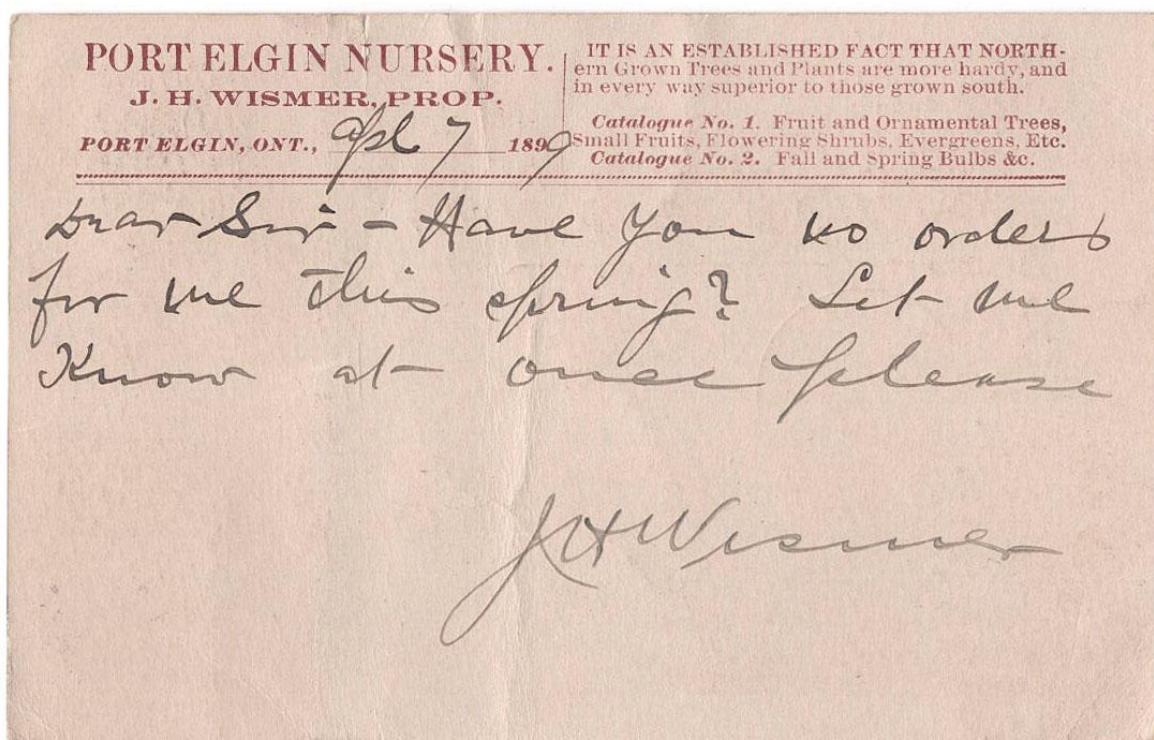 PORT ELGIN NURSERY.
J. H. WISMER, PROP.
PORT ELGIN, ONT., Apl 7 1899
IT IS AN ESTABLISHED FACT THAT NORTH-
ern Grown Trees and Plants are more hardy, and
in every way superior to those grown south.
Catalogue No. 1. Fruit and Ornamental Trees,
Small Fruits, Flowering Shrubs, Evergreens, Etc.
Catalogue No. 2. Fall and Spring Bulbs &c.
Dear Sir - Have you no orders
for me this spring? Let me
Know at once please
J H Wismer